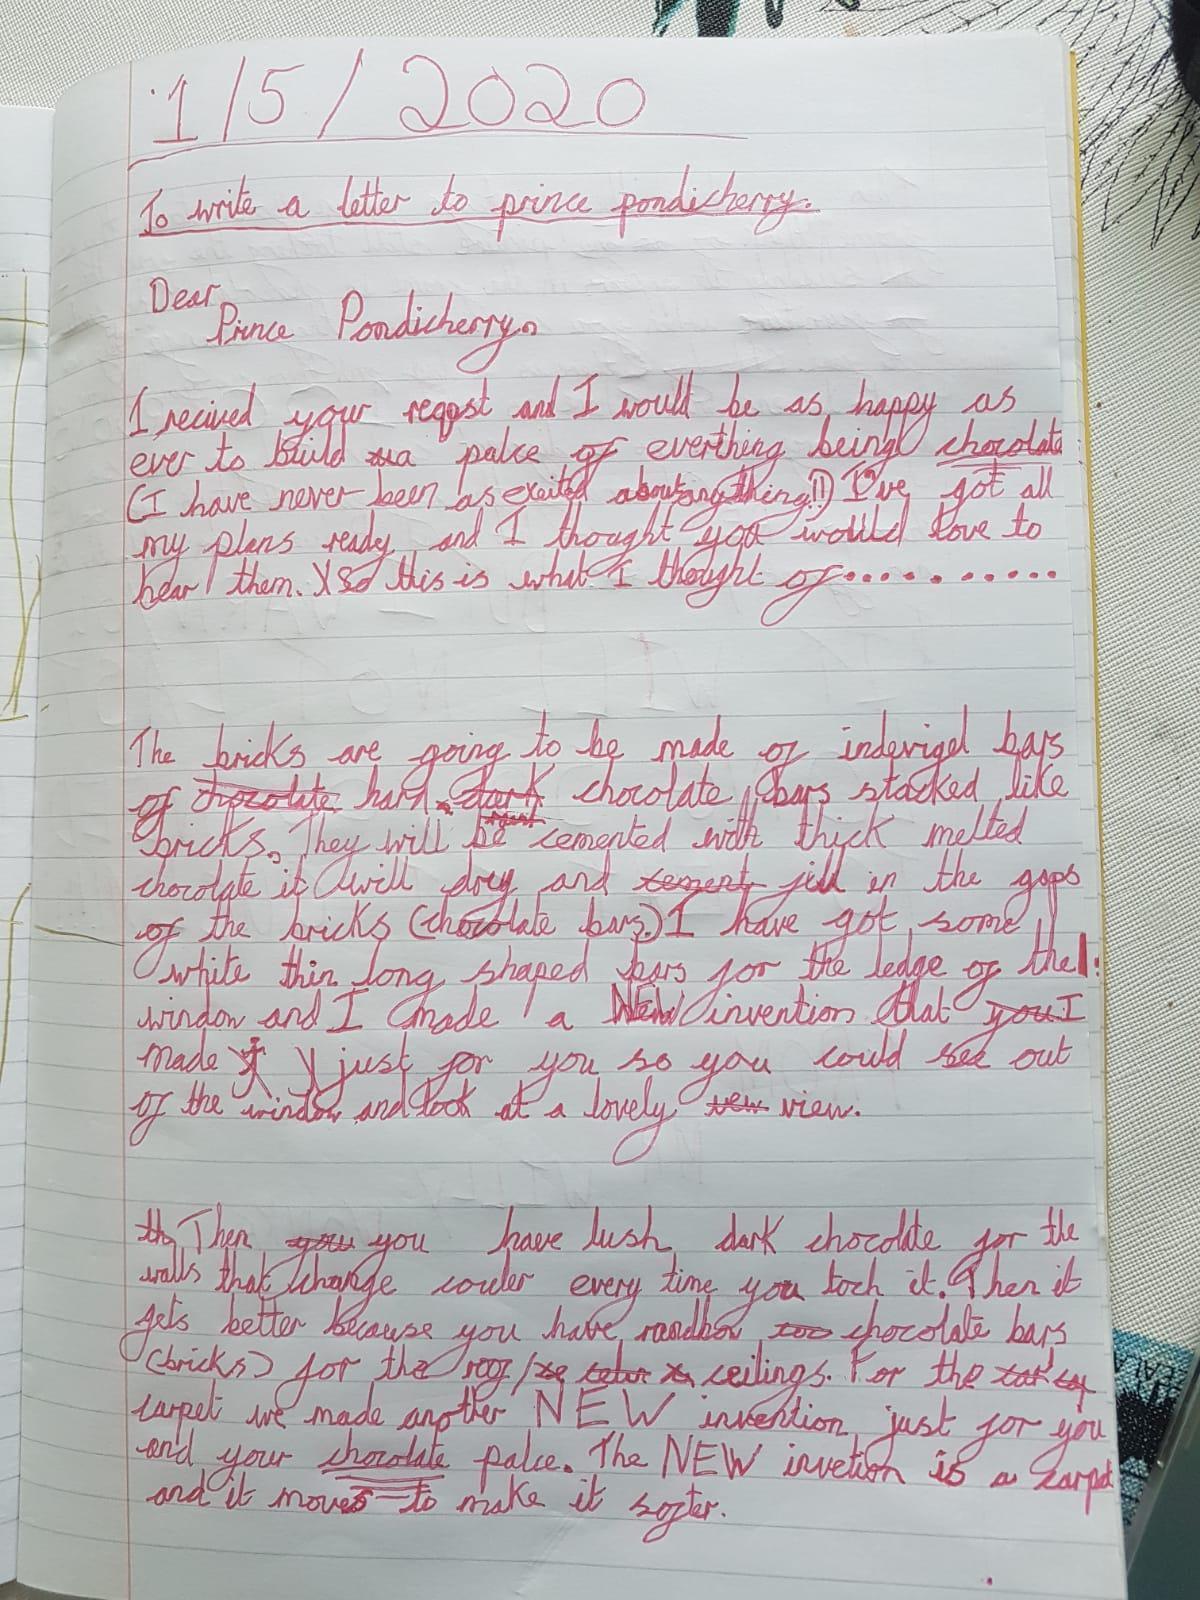 1/5/2020
To write a letter to prince pondicherry.
Dear
Prince Pondicherry,
I recived your reqost and I would be as happy as
ever to build a palce of everthing being chocolate
(I have never been as excited about anything!!) I've got all
my plans ready and I thought you would love to
hear them. So this is what I thought of...........
The bricks are going to be made of indevigel bars
of chocolate hard dark chocolate bars stacked like
bricks. They will be cemented with thick melted
chocolate it will drey and cement fill in the gaps
of the bricks (chocolate bars.) I have got some
white thin long shaped bars for the ledge of the
window and I made a NEW invention that you I
made just for you so you could see out
of the window and look at a lovely vew view.
th Then you you have lush dark chocolate for the
walls that change couler every time you toch it. Then it
gets better because you have randbow too chocolate bars
(bricks) for the roof/ ceilings. For the
carpet we made another NEW invention just for you
and your chocolate palce. The NEW invetion is a carpet
and it moves to make it softer.